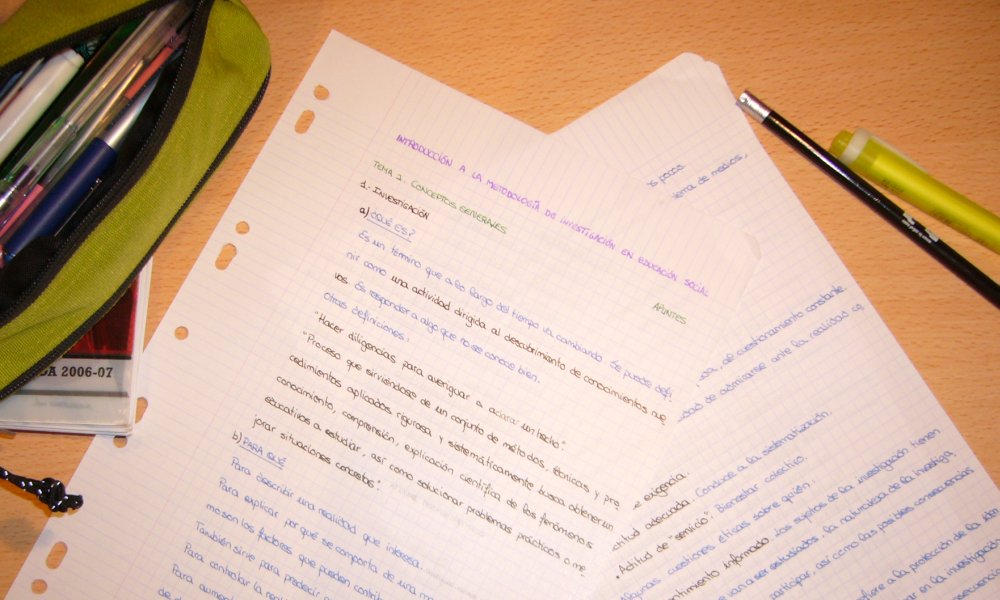 INTRODUCCIÓN A LA METODOLOGÍA DE INVESTIGACIÓN EN EDUCACIÓN SOCIAL
TEMA 1. CONCEPTOS GENERALES
APUNTES
1.- INVESTIGACIÓN
a) ¿QUÉ ES?
Es un término que a lo largo del tiempo va cambiando. Se puede defi-
nir como una actividad dirigida al descubrimiento de conocimientos nue
vos. Es responder a algo que no se conoce bien.
Otras definiciones:
"Hacer diligencias para averiguar a aclarar un hecho".
"Proceso que sirviéndose de un conjunto de métodos, técnicas y pro
cedimientos aplicados rigurosa y sistemáticamente busca obtener un
conocimiento, comprensión, explicación científica de los fenómenos
educativos a estudiar, así como solucionar problemas prácticos o me
jorar situaciones concretas".
b) PARA QUÉ
Para describir una realidad que interesa.
Para explicar por qué se comporta de una
mo son los factores que pueden
También sirve para predecir
Para controlar la
Para
os pocos
tema de medios,
, de cuestionamiento constante.
dad de admirarse ante la realidad
e exigencia.
ctitud adecuada. Conduce a la sistematización.
• Actitud de "servicio": Bienestar colectivo.
Algunas cuestiones éticas sobre quién.
ntimiento informado. Los sujetos de la investigación tienen
e van a ser estudiados, la naturaleza de la investiga
participar, así como las posibles consecuencias
fiere a la protección de la
en la investigación
DA 2006-07